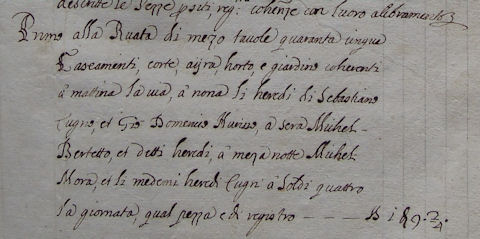 descritte le pezze, quantità, reg.º coherenze con l'uoro alibramento
Primo alla Ruata di mezo tavole quaranta cinque
Casamenti, corte, ayra, horto e giardino coherenti
à mattina la via, à nona li heredi di Sebastiano
Cugno, et Gio Domenico à sera Michel
Bertetto, et detti heredi, à meza notte Michel
Mora, et li medemi heredi Cugn à soldi quattro
la giornata, qual pezza e di registro